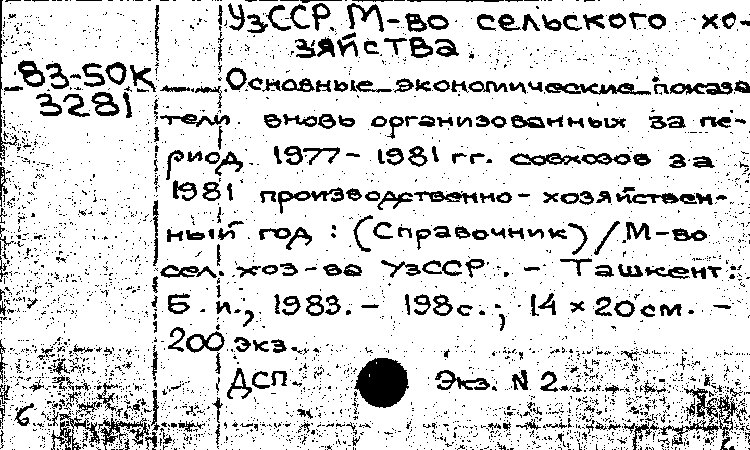 УзССР. М-во сельского хо-
зяйства.
83-50К
3281
Основные экономические показа
тели вновь организованных за пе-
риод 1977-1981 гг. совхозов за
1981 производственно-хозяйствен-
ный год : (Справочник) / М-во
сел. хоз-ва УзССР. - Ташкент:
Б. и., 1983. - 198с.; 14 × 20см. -
200 экз.
ДСП. Экз. N 2.
6